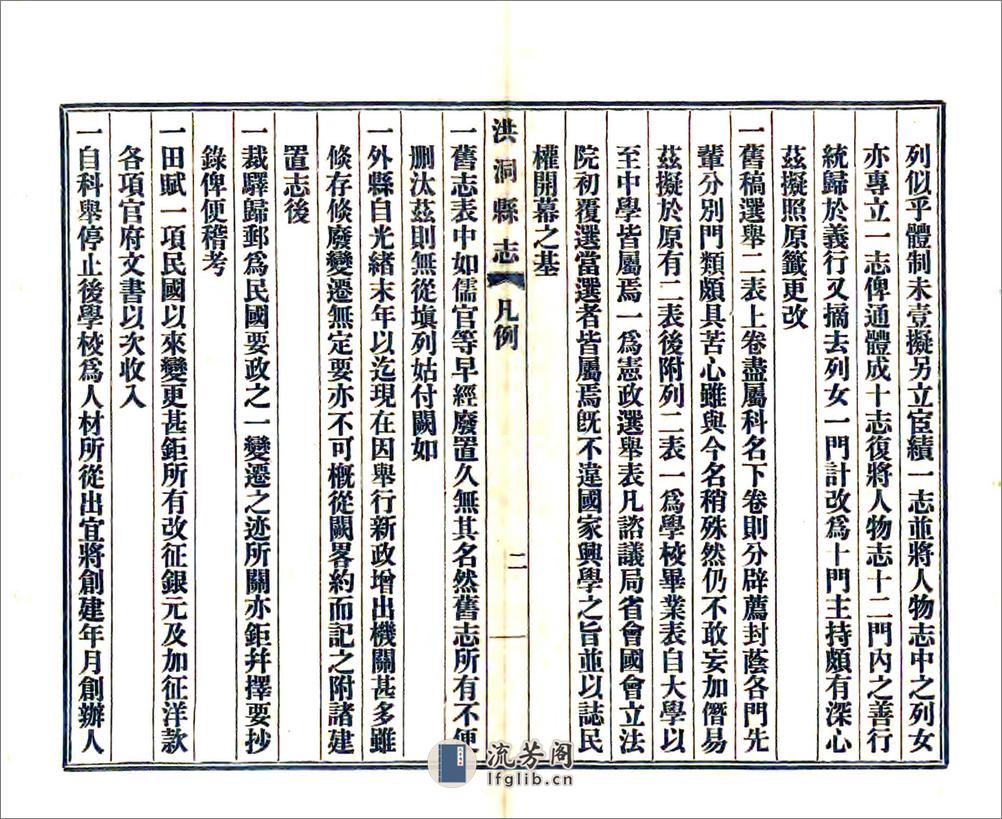 列似乎體制未壹擬另立宦績一志並將人物志中之列女
亦專立一志俾通體成十志復將人物志十二門內之善行
統歸於義行又摘去列女一門計改爲十門主持頗有深心
茲擬照原籤更改
一舊稿選舉二表上卷盡屬科名下卷則分辟薦封蔭各門先
輩分別門類頗具苦心雖與今名稍殊然仍不敢妄加僭易
茲擬於原有二表後附列二表一爲學校畢業表自大學以
至中學皆屬焉一爲憲政選舉表凡諮議局省會國會立法
院初覆選當選者皆屬焉旣不違國家興學之旨並以誌民
權開幕之基
洪洞縣志 凡例 二
一舊志表中如儒官等早經廢置久無其名然舊志所有不便
刪汰茲則無從塡列姑付闕如
一外縣自光緒末年以迄現在因舉行新政增出機關甚多雖
倏存倏廢變遷無定要亦不可槪從闕畧約而記之附諸建
置志後
一裁驛歸郵爲民國要政之一變遷之迹所關亦鉅幷擇要抄
錄俾便稽考
一田賦一項民國以來變更甚鉅所有改征銀元及加征洋款
各項官府文書以次收入
一自科舉停止後學校爲人材所從出宜將創建年月創辦人
流芳阁
lfglib.cn